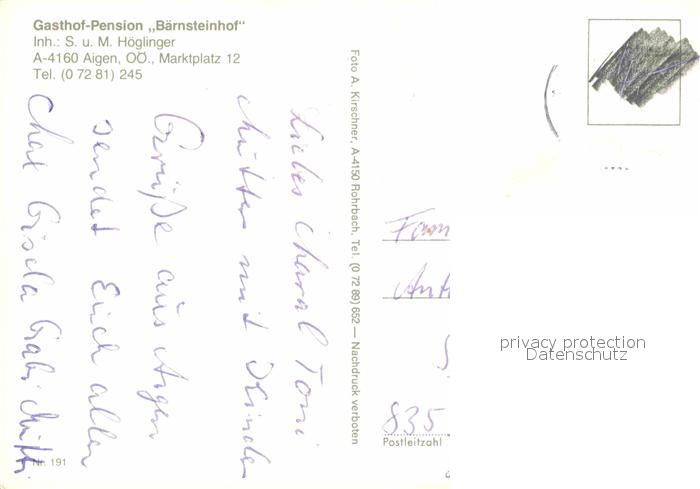 Gasthof-Pension „Bärnsteinhof“
Inh.: S. u. M. Höglinger
A-4160 Aigen, OÖ., Marktplatz 12
Tel. (0 72 81) 245
Liebes Toni
mit Kinder
Grüße aus Aigen
sendet Euch allen
Gisela Gabi
Nr. 191
Foto A. Kirschner, A-4150 Rohrbach, Tel. (0 72 89) 652 — Nachdruck verboten
Fam
Ant
835
Postleitzahl
privacy protection
Datenschutz